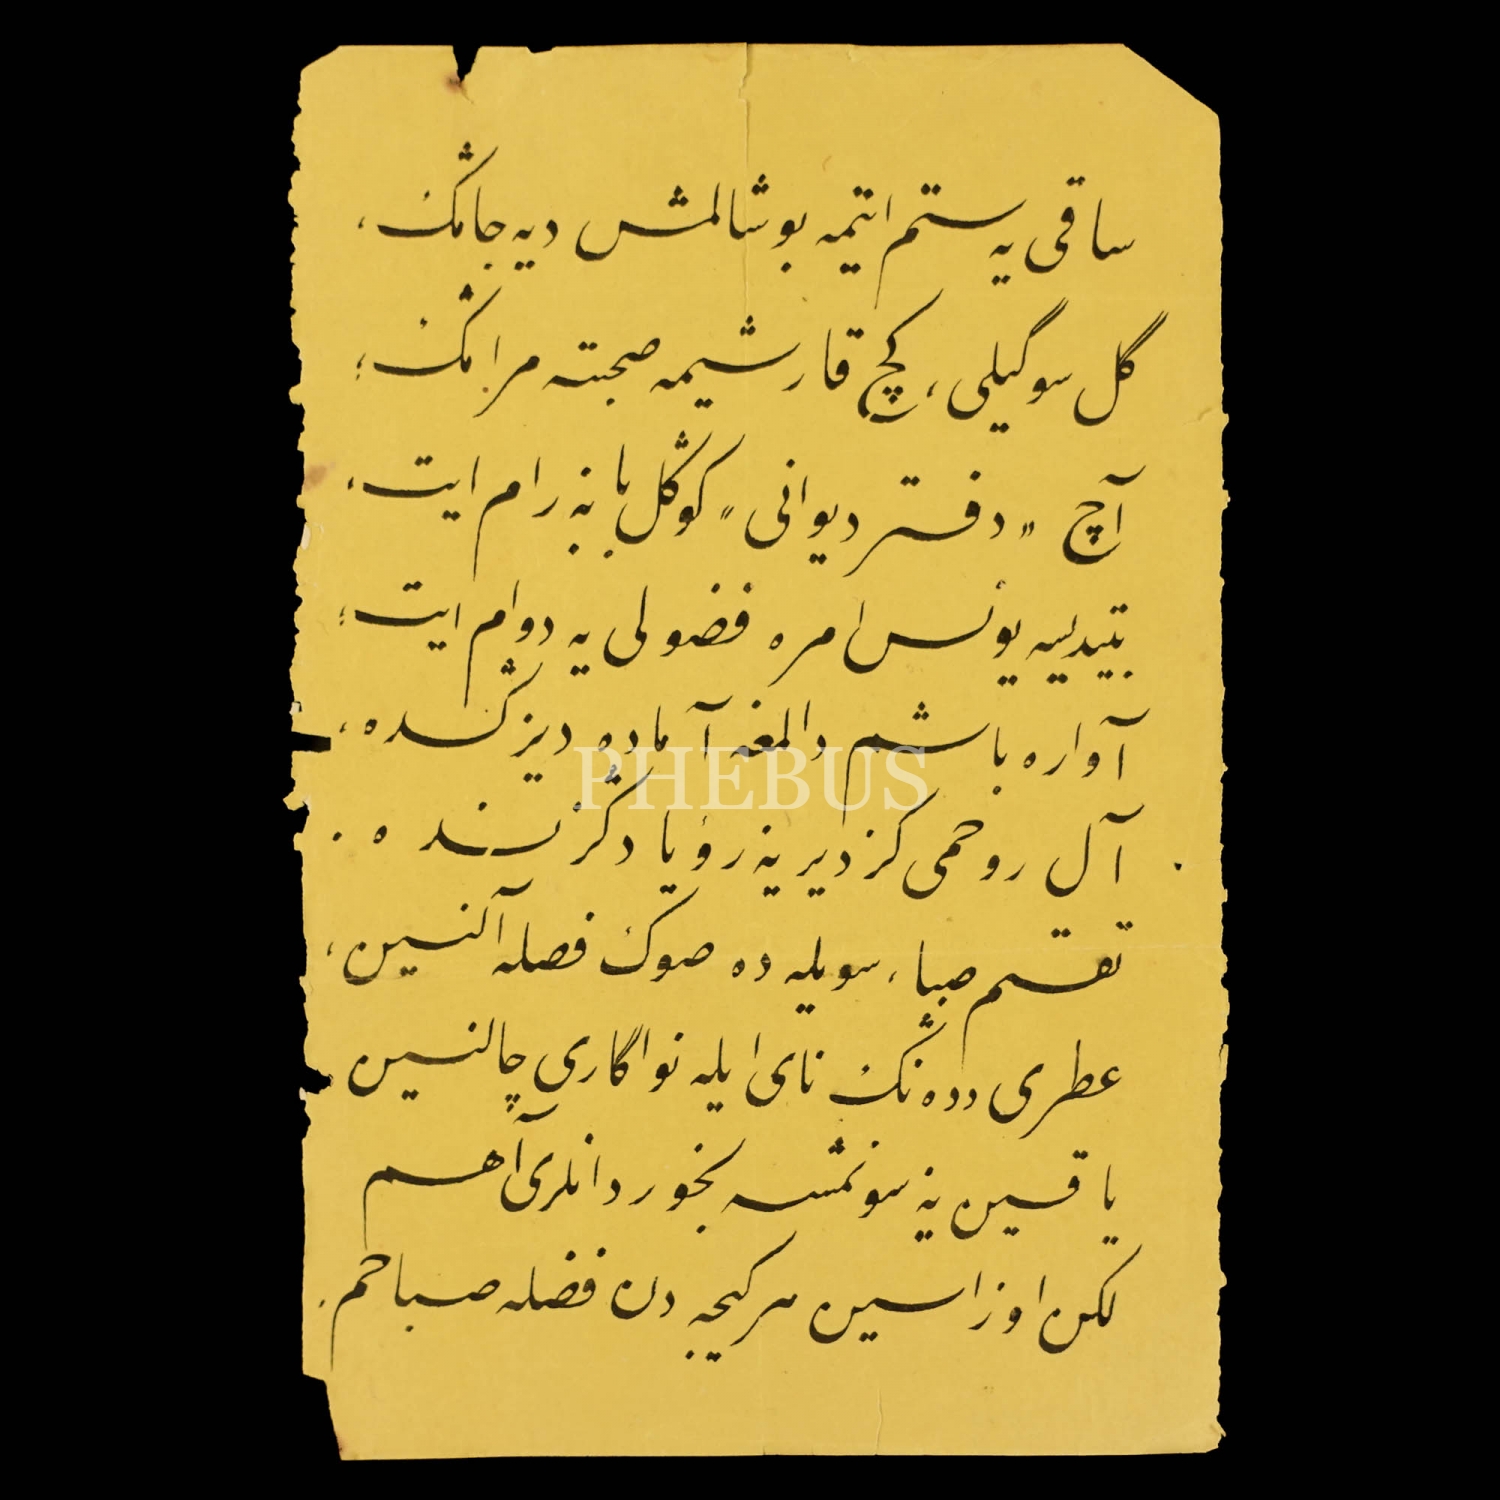 ساقی یه ستم ایتمه بوشالمش دیه جامڭ،
گل سوگیلی، گچ قارشیمه صحبتسه مرامڭ؛
آچ "دفتر دیوانی" کوڭل بابنه رام ایت،
بیتدیسه یونس امره فضولی یه دوام ایت؛
آواره باشم دالمغه آماده دیزڭده،
آل روحمی گزدیر ینه رؤیا دڭزنده.
تقسم صبا، سویله ده صوڭ فصله آلنسین،
عطری دده نڭ نای ایله نواکاری چالنسین
یاقسین ینه سونمشسه بخوردانلری آهم
لکن اوزاسین هر گیجه دن فضله صباحم.
PHEBUS